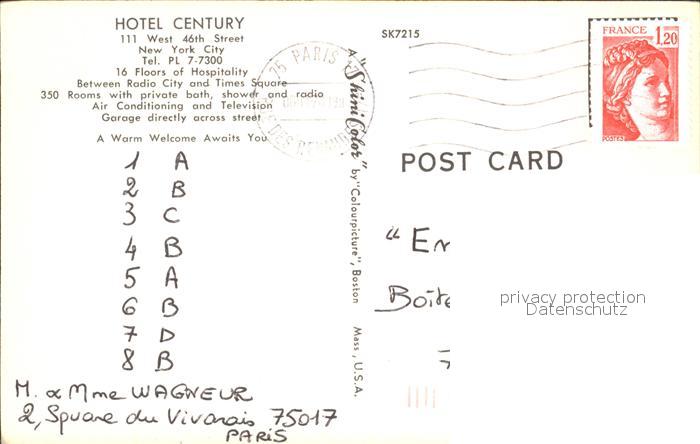 HOTEL CENTURY
111 West 46th Street
New York City
Tel. PL 7-7300
16 Floors of Hospitality
Between Radio City and Times Square
350 Rooms with private bath, shower and radio
Air Conditioning and Television
Garage directly across street
A Warm Welcome Awaits You
1 A
2 B
3 C
4 B
5 A
6 B
7 D
8 B
M. & Mme WAGNEUR
2, Square du Vivarais 75017
PARIS
A "Shini Color" by "Colourpicture", Boston Mass., U.S.A.
SK7215
75 PARIS
FRANCE 1,20
POSTES
POST CARD
"En
Boîte
privacy protection
Datenschutz